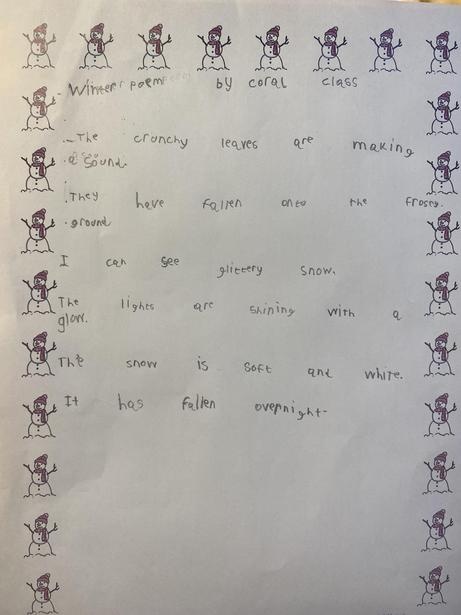 Winter poem by coral class
The crunchy leaves are making
a sound.
They have fallen onto the frosty.
ground
I can see glittery snow.
The lights are shining with a
glow.
The snow is soft and white.
It has fallen overnight.